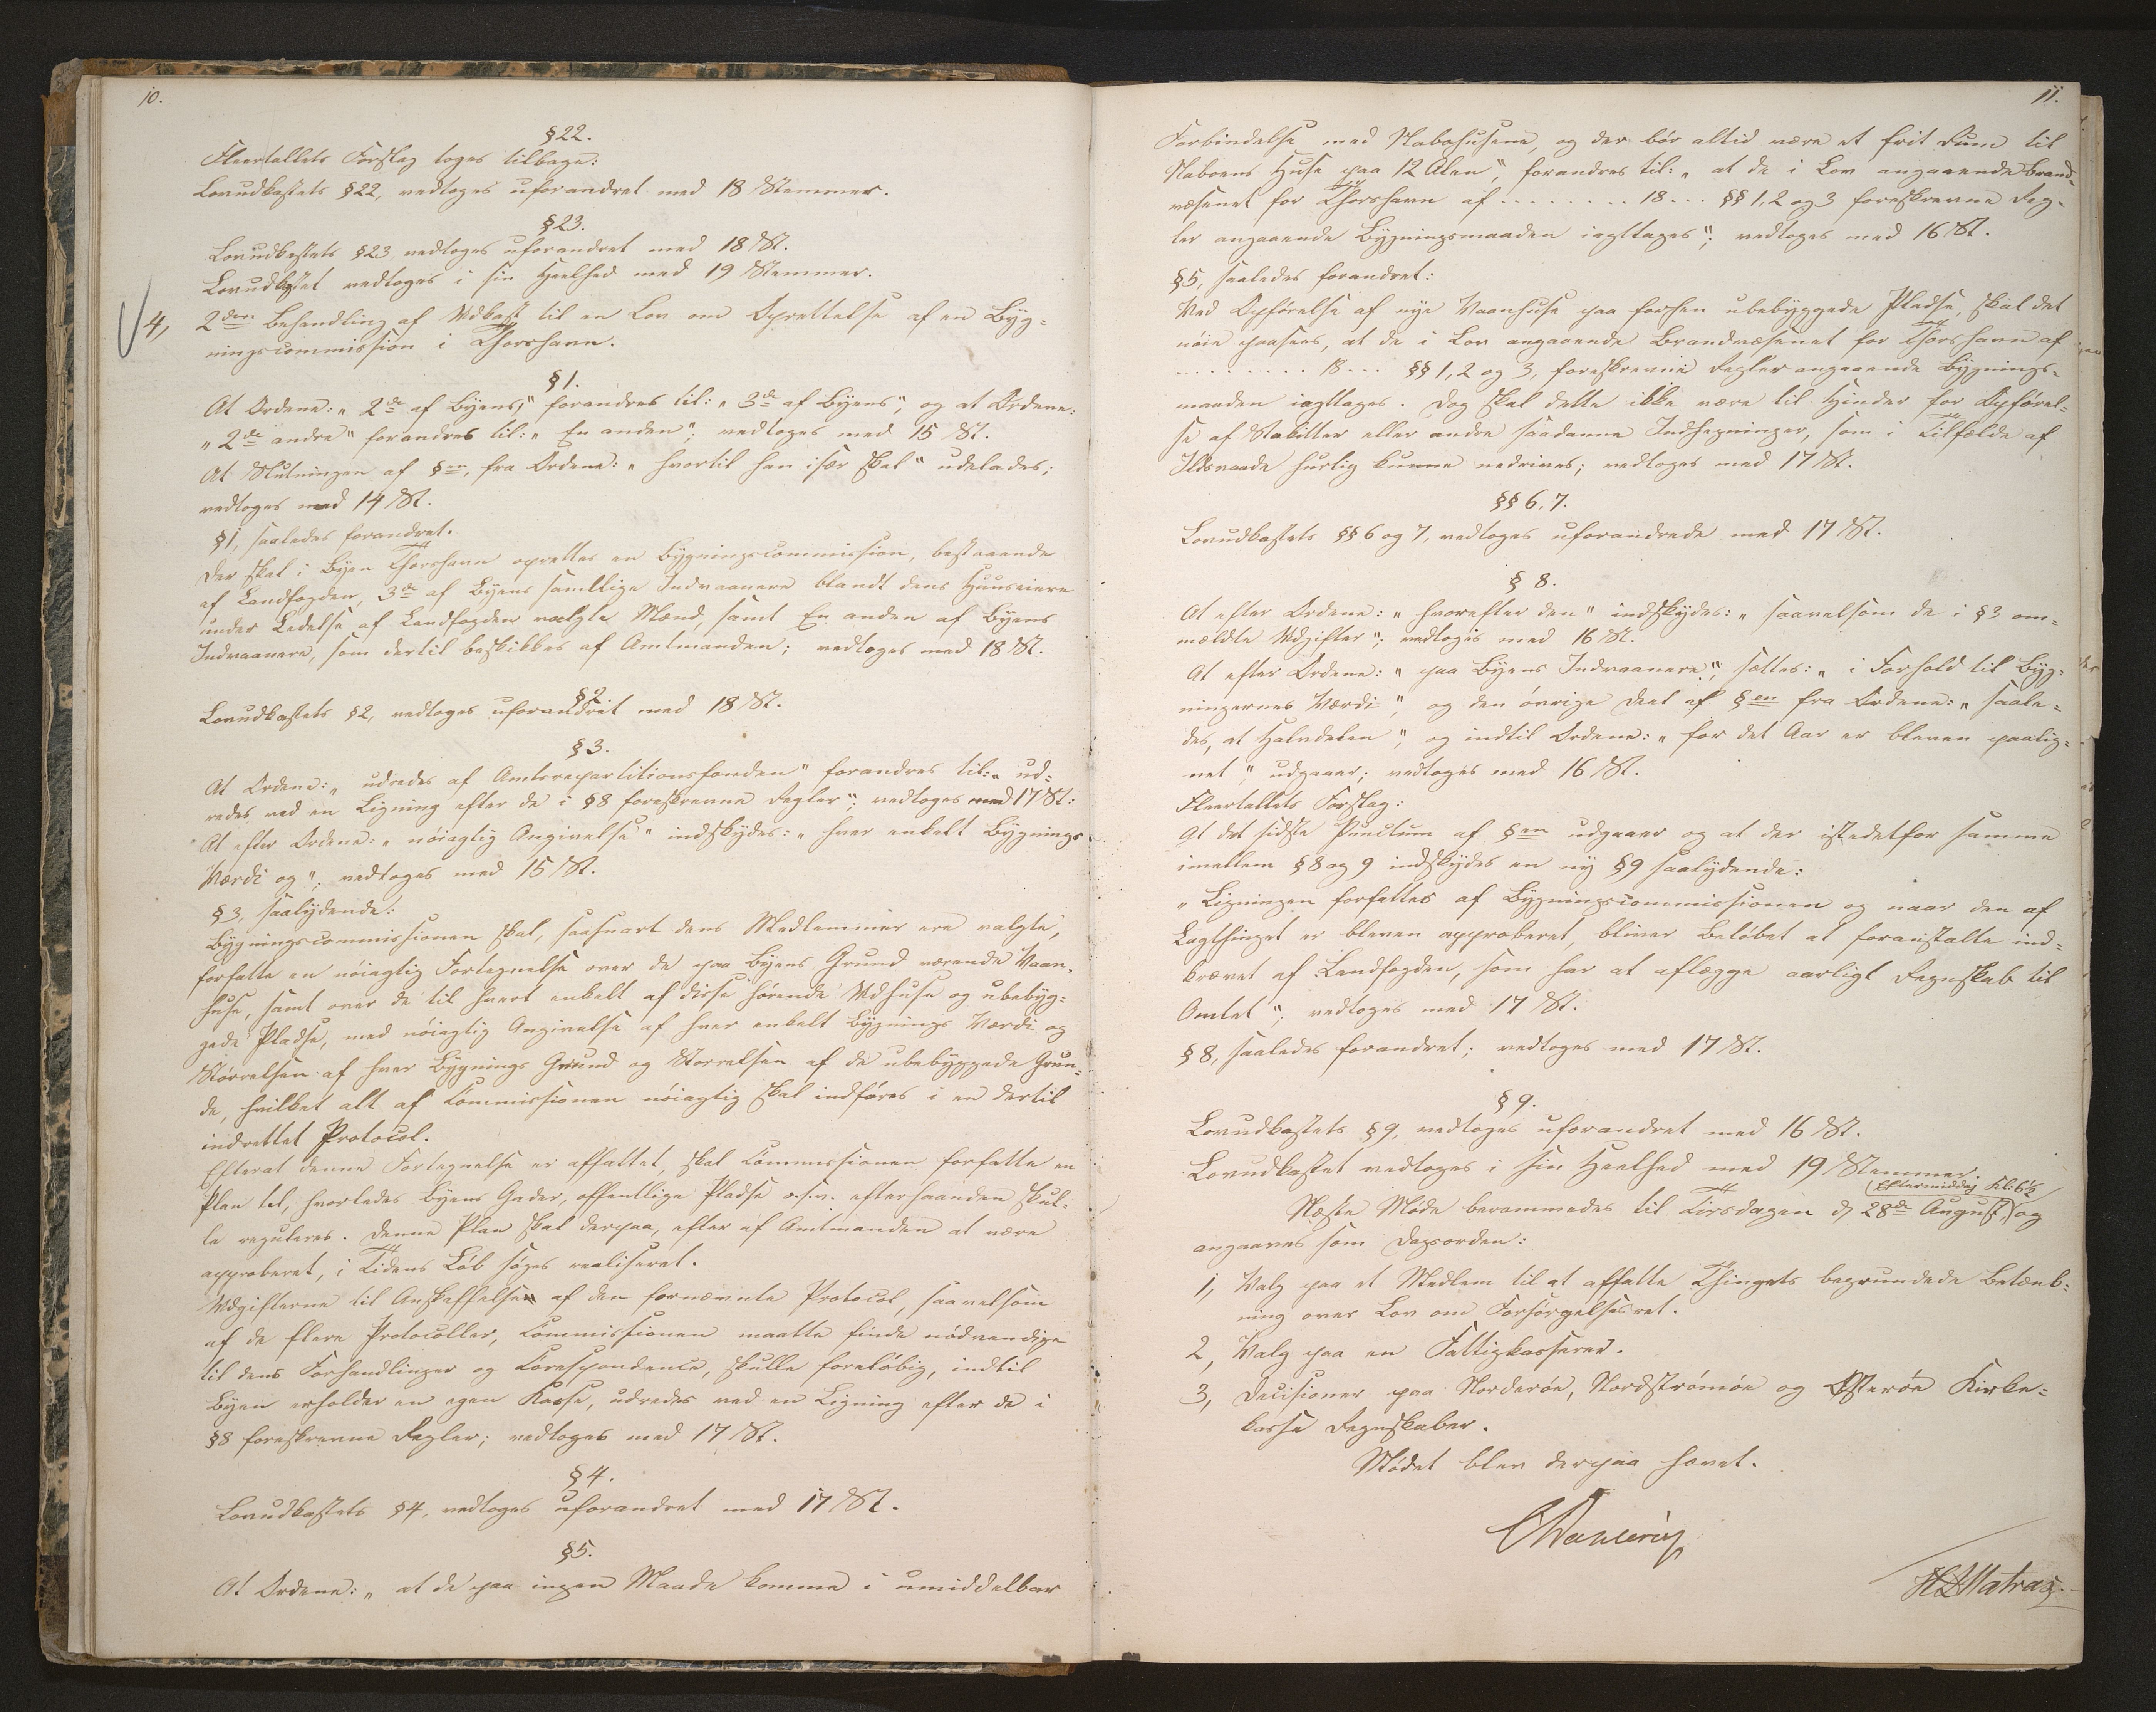 10.
§22.
Fleertallets Forslag toges tilbage:
Lovudkastets §22, vedtoges uforandret med 18 Stemmer.
§23.
Lovudkastets §23 vedtoges uforandret med 18 St.
Lovudkastet vedtoges i sin Heelhed med 19 Stemmer.
4, 2den Behandling af Udkast til en Lov om Oprettelse af en Byg-
ningscommission i Thorshavn.
§1.
At Ordene: „2de af Byens“, forandres til: „3de af Byens“, og at Ordene:
„2de andre“ forandres til: „En anden“; vedtoges med 15 St.
At Slutningen af §en, fra Ordene: „hvortil han især skal“ udelades;
vedtoges med 14 St.
§1, saaledes forandret.
Der skal i Byen Thorshavn oprettes en Bygningscommission, bestaaende
af Landfogden, 3de af Byens samtlige Indvaanere blandt dens Huuseiere
under Ledelse af Landfogden valgte Mænd, samt En anden af Byens
Indvaanere, som dertil beskikkes af Amtmanden; vedtoges med 18 St.
§2.
Lovudkastets §2, vedtoges uforandret med 18 St.
§3.
At Ordene: „udredes af Amtsrepartitionsfonden“ forandres til: „ud-
redes ved en Ligning efter de i §8 foreskrevne Regler“; vedtoges med 17 St:
At efter Ordene: „nöiagtig Angivelse“ indskydes: „hver enkelt Bygnings
Værdi og“; vedtoges med 15 St.
§3, saalydende:
Bygningscommissionen skal, saasnart dens Medlemmer ere valgte,
forfatte en nöiagtig Fortegnelse over de paa Byens Grund værende Vaan-
huse, samt over de til hvert enkelt af disse hörende Udhuse og ubebyg-
gede Pladse, med nöiagtig Angivelse af hver enkelt Bygnings Værdi og
Störrelsen af hver Bygnings Grund og Störrelsen af de ubebyggede Grun-
de, hvilket alt af Commissionen nöiagtig skal indföres i en dertil
indrettet Protocol.
Efterat denne Fortegnelse er affattet, skal Commissionen forfatte en
Plan til, hvorledes Byens Gader, offentlige Pladse o.s.v. efterhaanden skul-
le reguleres. Denne Plan skal derpaa, efter af Amtmanden at være
approberet, i Tidens Löb söges realiseret.
Udgifterne til Anskaffelsen af den fornævnte Protocol, saavelsom
af de flere Protocoller, Commissionen maatte finde nödvendige
til dens Forhandlinger og Correspondence, skulle foreløbig, indtil
Byen erholder en egen Kasse, udredes ved en Ligning efter de i
§8 foreskrevne Regler; vedtoges med 17 St.
§4.
Lovudkastets §4, vedtoges uforandret med 17 St.
§5.
At Ordene: „at de paa ingen Maade komme i umiddelbar
11.
Forbindelse med Nabohusene, og der bör altid være et frit Rum til
Naboens Huse paa 12 Alen“, forandres til: „at de i Lov angaaende Brand-
væsenet for Thorshavn af ........ 18... §§ 1, 2 og 3 foreskrevne Reg-
ler angaaende Bygningsmaaden iagttages“; vedtoges med 16 St.
§5, saaledes forandret:
Ved Opförelse af nye Vaanhuse paa forhen ubebyggede Pladse, skal det
nöie paasees, at de i Lov angaaende Brandvæsenet for Thorshavn af
........ 18... §§ 1, 2 og 3, foreskrevne Regler angaaende Bygnings-
maaden iagttages. Dog skal dette ikke være til Hinder for Opförel-
se af Stakitter eller andre saadanne Indhegninger, som i Tilfælde af
Ildsvaade hurtig kunne nedrives; vedtoges med 17 St.
§§ 6, 7.
Lovudkastets §§ 6 og 7, vedtoges uforandrede med 17 St.
§ 8.
At efter Ordene: „hvorefter den“ indskydes: „saavelsom de i §3 om-
meldte Udgifter“; vedtoges med 16 St.
At efter Ordene: „paa Byens Indvaanere“, sættes: „i Forhold til Byg-
ningernes Værdi“, og den övrige Deel af §en fra Ordene: „saale-
des, at Halvdelen“, og indtil Ordene: „for det Aar er bleven paalig-
net“, udgaaer; vedtoges med 16 St.
Fleertallets Forslag:
At det sidste Punctum af §en udgaaer og at der istedetfor samme
imellem §8 og 9 indskydes en ny §9 saalydende:
„Ligningen forfattes af Bygningscommissionen og naar den af
Lagthinget er bleven approberet, bliver Belöbet at foranstalte ind-
krævet af Landfogden, som har at aflægge aarligt Regnskab til
Amtet“; vedtoges med 17 St.
§8, saaledes forandret; vedtoges med 17 St.
§9.
Lovudkastets §9, vedtoges uforandret med 16 St.
Lovudkastet vedtoges i sin Heelhed med 19 Stemmer.
Eftermiddag Kl: 6½
Næste Møde berammedes til Tirsdagen d. 28de August, og
angaaves som Dagsorden:
1, Valg paa et Medlem til at affatte Thingets begrundede Betænk-
ning over Lov om Forsörgelsesret.
2, Valg paa en Fattigkasserer.
3, Decisioner paa Norderöe, Nordströmöe og Österöe Kirke-
kasse Regnskaber.
Mödet blev derpaa hævet.
CDahlerup
HDMatras.